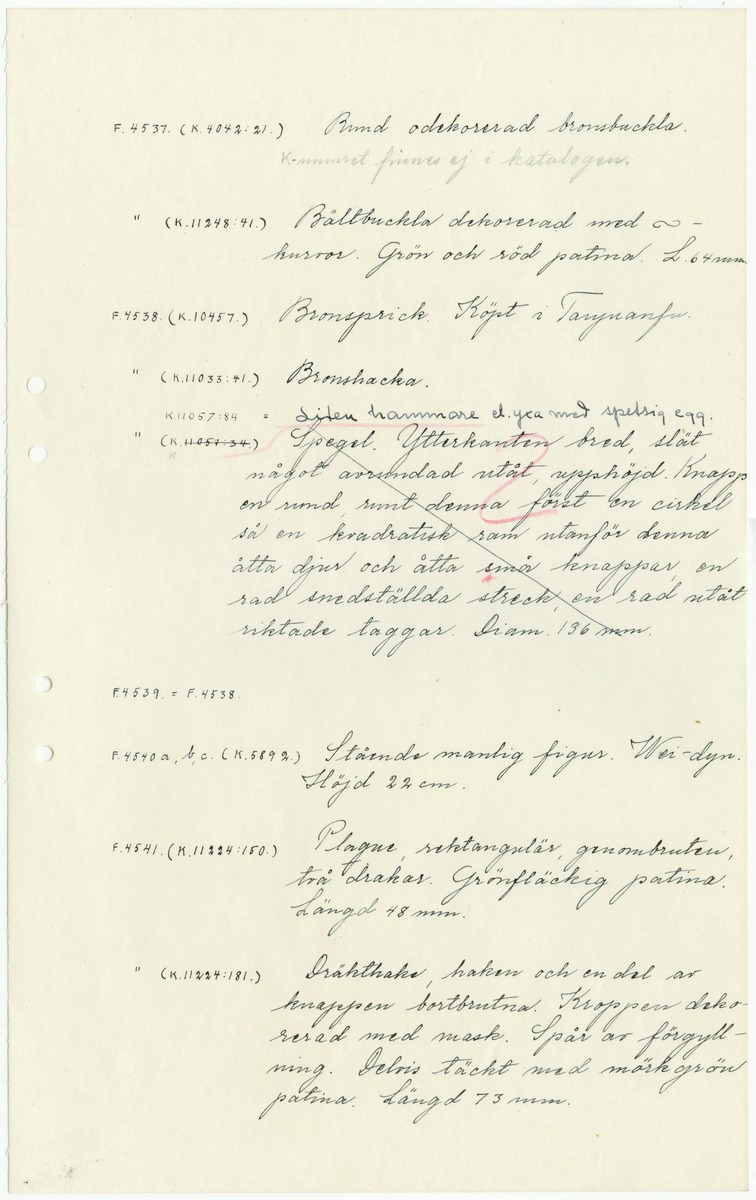 F. 4537. (K.4042:21.) Rund odekorerad bronsbuckla.
K-numret finnes ej i katalogen.
" (K.11248:41.) Bältbuckla dekorerad med ∾-
kurvor. Grön och röd patina. L. 64 mm.
F.4538. (K.10457.) Bronsprick. Köpt i Taiyuanfu.
" (K.11033:41.) Bronshacka.
K.11057:84 = Liten hammare el. yxa med spetsig egg.
" (K.11057:34.) Spegel. Ytterkanten bred, slät
K
något avrundad utåt, upphöjd. Knapp
en rund, runt denna först en cirkel
så en kvadratisk ram utanför denna
åtta djur och åtta små knappar, en
rad snedställda streck, en rad utåt
riktade taggar. Diam. 136 mm.
?
F.4539. = F.4538.
F.4540a, b, c. (K.5892.) Stående manlig figur. Wei-dyn.
Höjd 22 cm.
F.4541. (K.11224:150.) Plaque, rektangulär, genombruten,
två drakar. Grönfläckig patina.
Längd 48 mm.
" (K.11224:181.) Dräkthake, haken och en del av
knappen bortbrutna. Kroppen deko-
rerad med mask. Spår av förgyll-
ning. Delvis täckt med mörkgrön
patina. Längd 73 mm.